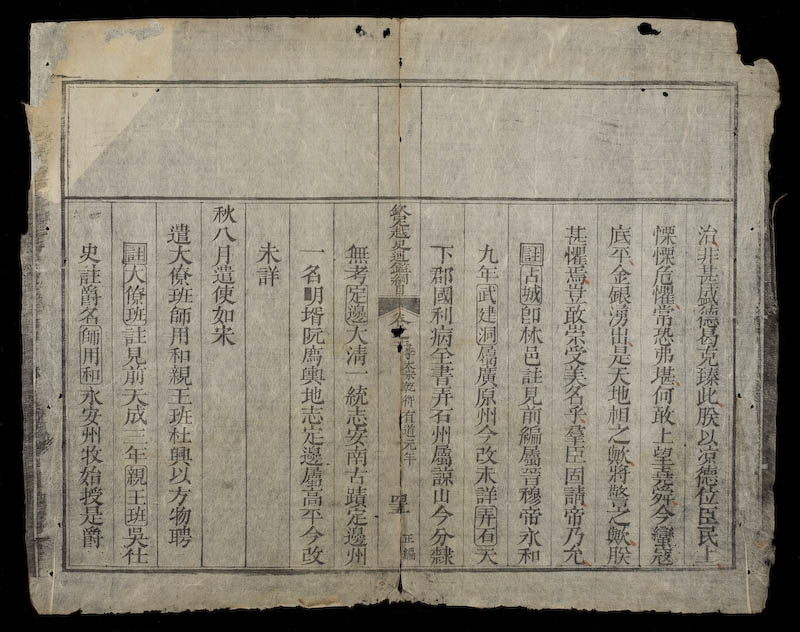 治非甚盛德曷克臻此朕以凉德位臣民上
慄慄危懼常恐弗堪何敢上望堯舜今蠻寇
底平金銀湧出是天地相之歟將警之歟朕
甚懼焉豈敢崇受美名乎羣臣固請帝乃允
註占城卽林邑註見前編屬晉穆帝永和
九年武建洞屬廣原州今改未詳弄石天
下郡國利病全書弄石州屬諒山今分隸
欽定越史通鑑綱目 卷 李太宗乾符有道元年 正編
無考定邊大清一統志安南古蹟定邊州
一名明壻阮廌輿地志定邊屬高平今改
未詳
秋八月遣使如宋
遣大僚班師用和親王班杜興以方物聘
註大僚班註見前天成三年親王班吳仕
史註爵名師用和永安州牧始授是爵